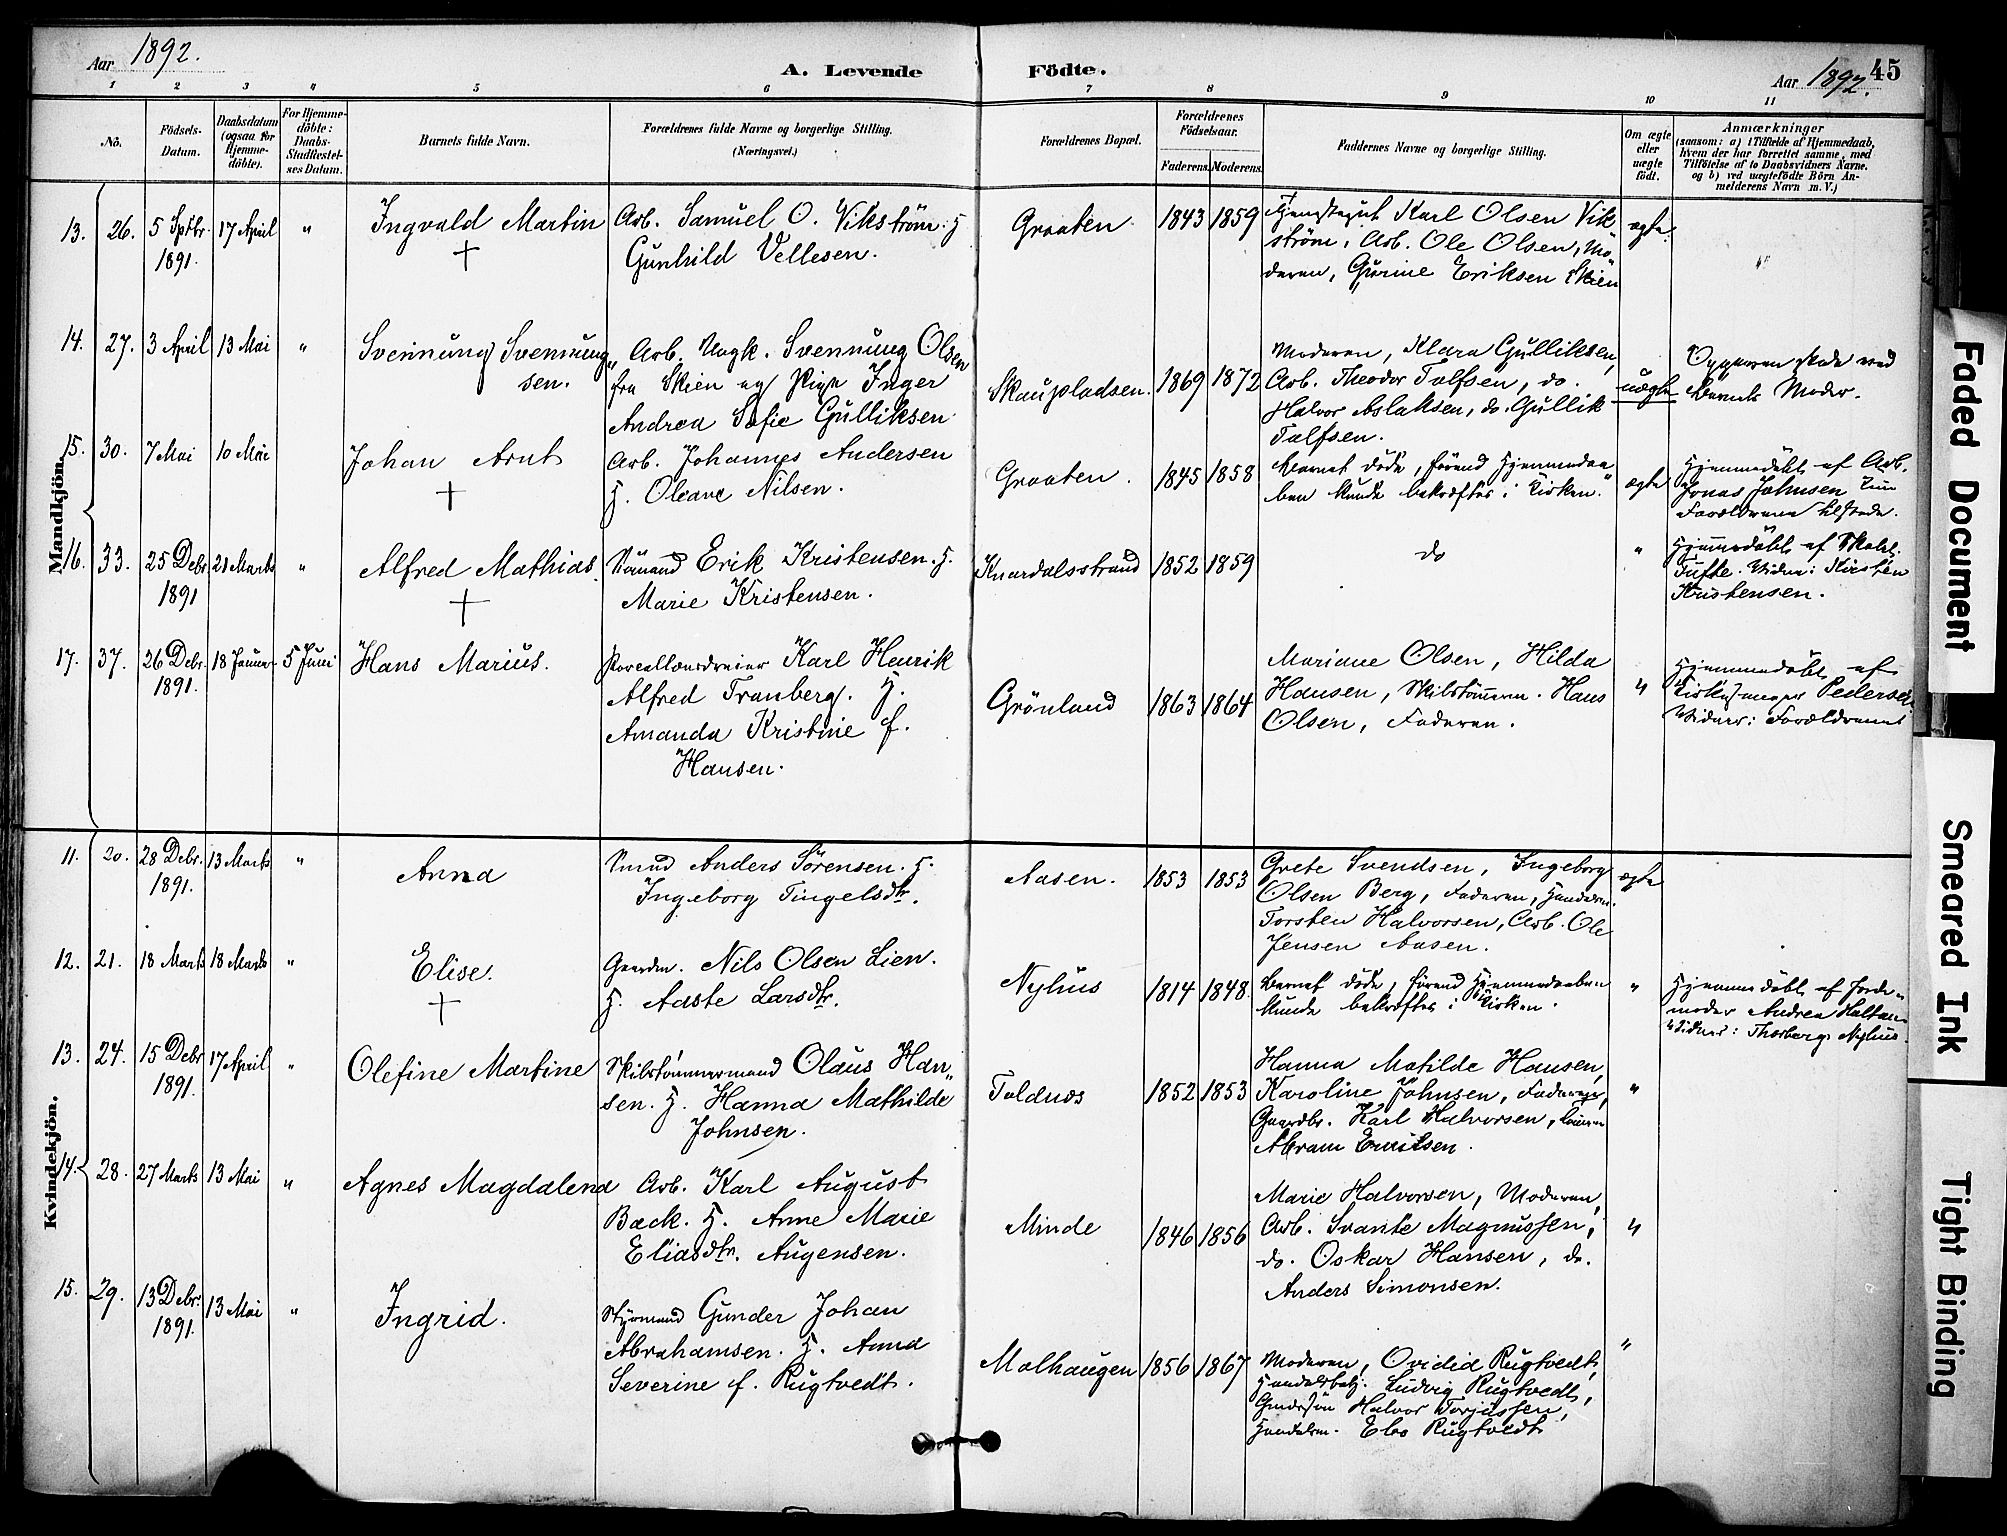 Aar 1892.
A. Levende Födte.
Aar 1892.
45
1 2 3 4 5 6 7 8 9 10 11
No.
Födsels-
Datum.
Daabsdatum
(ogsaa for
Hjemme-
döbte).
For Hjemme-
döbte:
Daabs-
Stadfæstel-
ses Datum.
Barnets fulde Navn.
Forældrenes fulde Navne og borgerlige Stilling.
(Næringsvei.)
Forældrenes Bopæl.
Forældrenes
Födselsaar.
Faderens. Moderens.
Faddernes Navne og borgerlige Stilling.
Om ægte
eller
uægte
født.
Anmærkninger
(saasom: a) i Tilfælde af Hjemmedaab,
hvem der har forrettet samme, med
Tilföielse af to Daabsvidners Navne.
og b) ved uægtefödte Börn An-
melderens Navn m. V.)
Mandkjön.
13. 26. 5 Sptbr. 17 April " Ingvald Martin Arb. Samuel O. Vikström. H.
1891. + Gunhild Vellesen.
Graaten 1843 1859 Tjenestegut Karl Olsen Vik-
ström, Arb. Ole Olsen, Mo-
deren, Gurine Eriksen Skien
ægte.
14. 27. 3 April 13 Mai " Svennung Svennung-
sen.
Arb. Ungk. Svennung Olsen
fra Skien og Pige Inger
Andrea Sofie Gulliksen
Skaupladsen. 1869 1872
Moderen, Klara Gulliksen,
Arb. Theodor Tolfsen, do.
Halvor Aslaksen, do. Gullik
Tolfsen.
uægte
Barnets Moder.
15. 30. 7 Mai 10 Mai Johan Arnt
+
Arb. Johannes Andersen
H. Oleane Nilsen.
Graaten. 1845 1858
Barnet döde, förend Hjemmedaa-
ben kunde bekræftes i Kirken.
ægte
Hjemmedöbt af Arb.
Jonas Johnsen
Forældrene tilstede.
16. 33. 25 Debr. 21 Marts " Alfred Mathias.
1891 +
Erik Kristensen. H.
Marie Kristensen.
Knardalsstrand 1852 1859
do
"
Hjemmedöbt af
Tufte. Vidner: Kirsten
Kristensen.
17. 37. 26 Debr. 18 Januar 5 Juni Hans Marius.
1891.
Porcellænsdreier Karl Henrik
Alfred Tranberg. H.
Amanda Kristine f.
Hansen.
Grönland 1863 1864
Mariane Olsen, Hilda
Hansen, Skibstömerm. Hans
Olsen, Faderen.
"
Hjemmedöbt af
Kirkesanger Pedersen.
Vidner: Forældrene
Kvindekjön.
11. 20. 28 Debr. 13 Marts " Anna
1891.
Anders Sörensen. H.
Ingeborg Tingelsdtr.
Aasen. 1853 1853
Grete Svendsen, Ingeborg
Olsen Berg, Faderen, Handelsm.
Torsten Halvorsen, Arb. Ole
Jensen Aasen.
ægte
12. 21. 18 Marts 18 Marts " Elise.
+
Gaardm. Nils Olsen Lien.
H. Aaste Larsdtr.
Nyhus 1814 1848.
Barnet döde, förend Hjemmedaaben
kunde bekræftes i Kirken.
"
Hjemmedöbt af Jorde-
moder Andrea
Vidner: Thorberg Nyhus.
13. 24. 15 Debr. 17 April " Olefine Martine
1891.
Skibstömmermand Olaus Han-
sen. H. Hanna Mathilde
Johnsen.
Toldnes 1852 1853
Hanna Matilde Hansen,
Karoline Johnsen, Faderen,
Gaardbr. Karl Halvorsen,
Abram
"
14. 28. 27 Marts 13 Mai " Agnes Magdalena
Arb. Karl August
Back. H. Anne Marie
Eliasdtr. Augensen.
Minde 1846 1856
Marie Halvorsen, Moderen,
Arb. Svante Magnussen,
do. Oskar Hansen, do.
Anders Simonsen.
"
15. 29. 13 Debr. 13 Mai " Ingrid.
1891.
Styrmand Gunder Johan
Abrahamsen. H. Anna
Severine f. Rugtvedt.
Molhaugen 1856 1867
Moderen, Ovidia Rugtvedt,
Handelsbetj. Ludvig Rugtvedt,
Halvor Torjussen,
Handelsm. Rugtvedt
"
Faded Document
Smeared Ink
Tight Binding